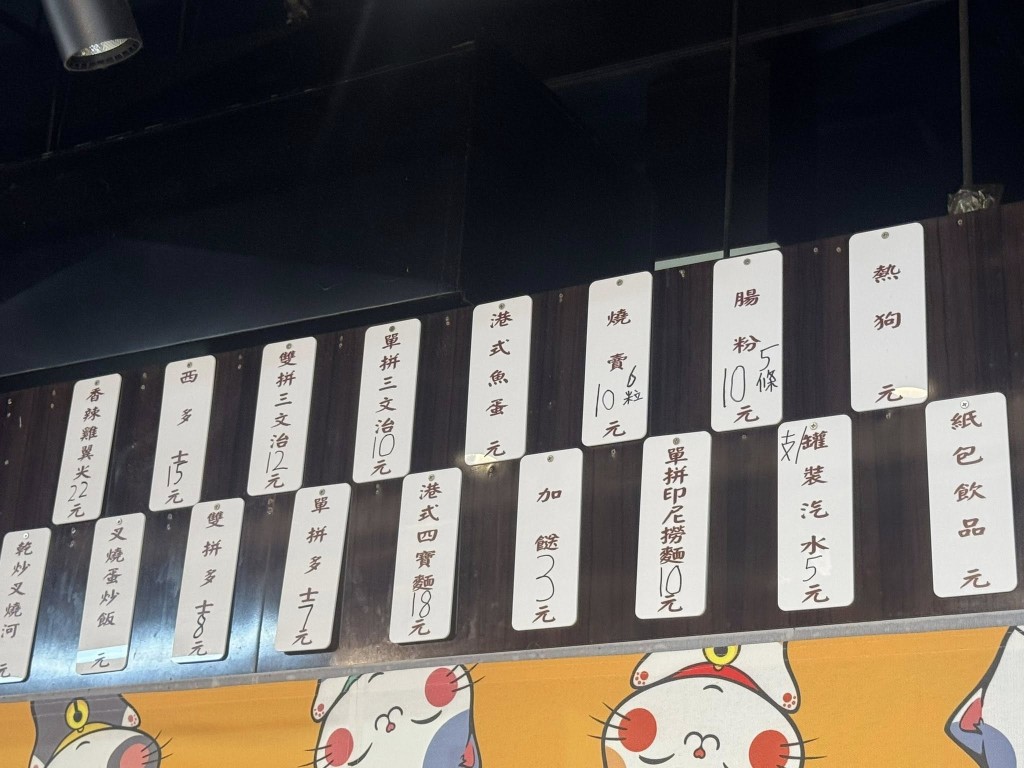 熱狗 元
腸粉 5條 10元
燒賣 6粒 10元
港式魚蛋 元
單拼三文治10元
雙拼三文治12元
西多士15元
香辣雞翼尖22元
紙包飲品 元
支/罐裝汽水5元
單拼印尼撈麵10元
加餸3元
港式四寶麵18元
單拼多士7元
雙拼多士8元
叉燒蛋炒飯 元
乾炒叉燒河 元